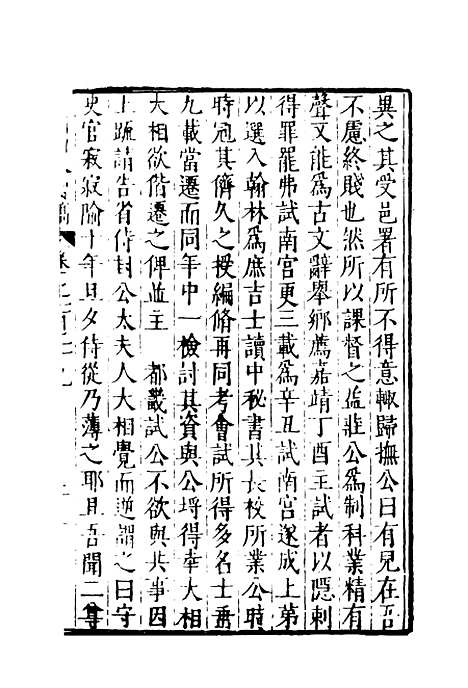 異之其受邑署有所不得意輒歸撫公曰有兒在吾
不慮終賤也然所以課督之益莊公為制科業精有
聲又能為古文辭舉鄉薦嘉靖丁酉主試者以隱刺
得罪罷弗試南宮更三載為辛丑試南宮遂成上第
以選入翰林為庶吉士讀中秘書其長校所業公時
時冠其儕久之授編脩再同考會試所得多名士再
九載當遷而同年中一檢討其資與公埒得幸大相
大相欲偕遷之俾並主 都畿試公不欲與共事因
上疏請告省侍封公太夫人大相覺而逆謂之曰守
史官寂寂隃十年旦夕侍從乃薄之耶且吾聞二尊